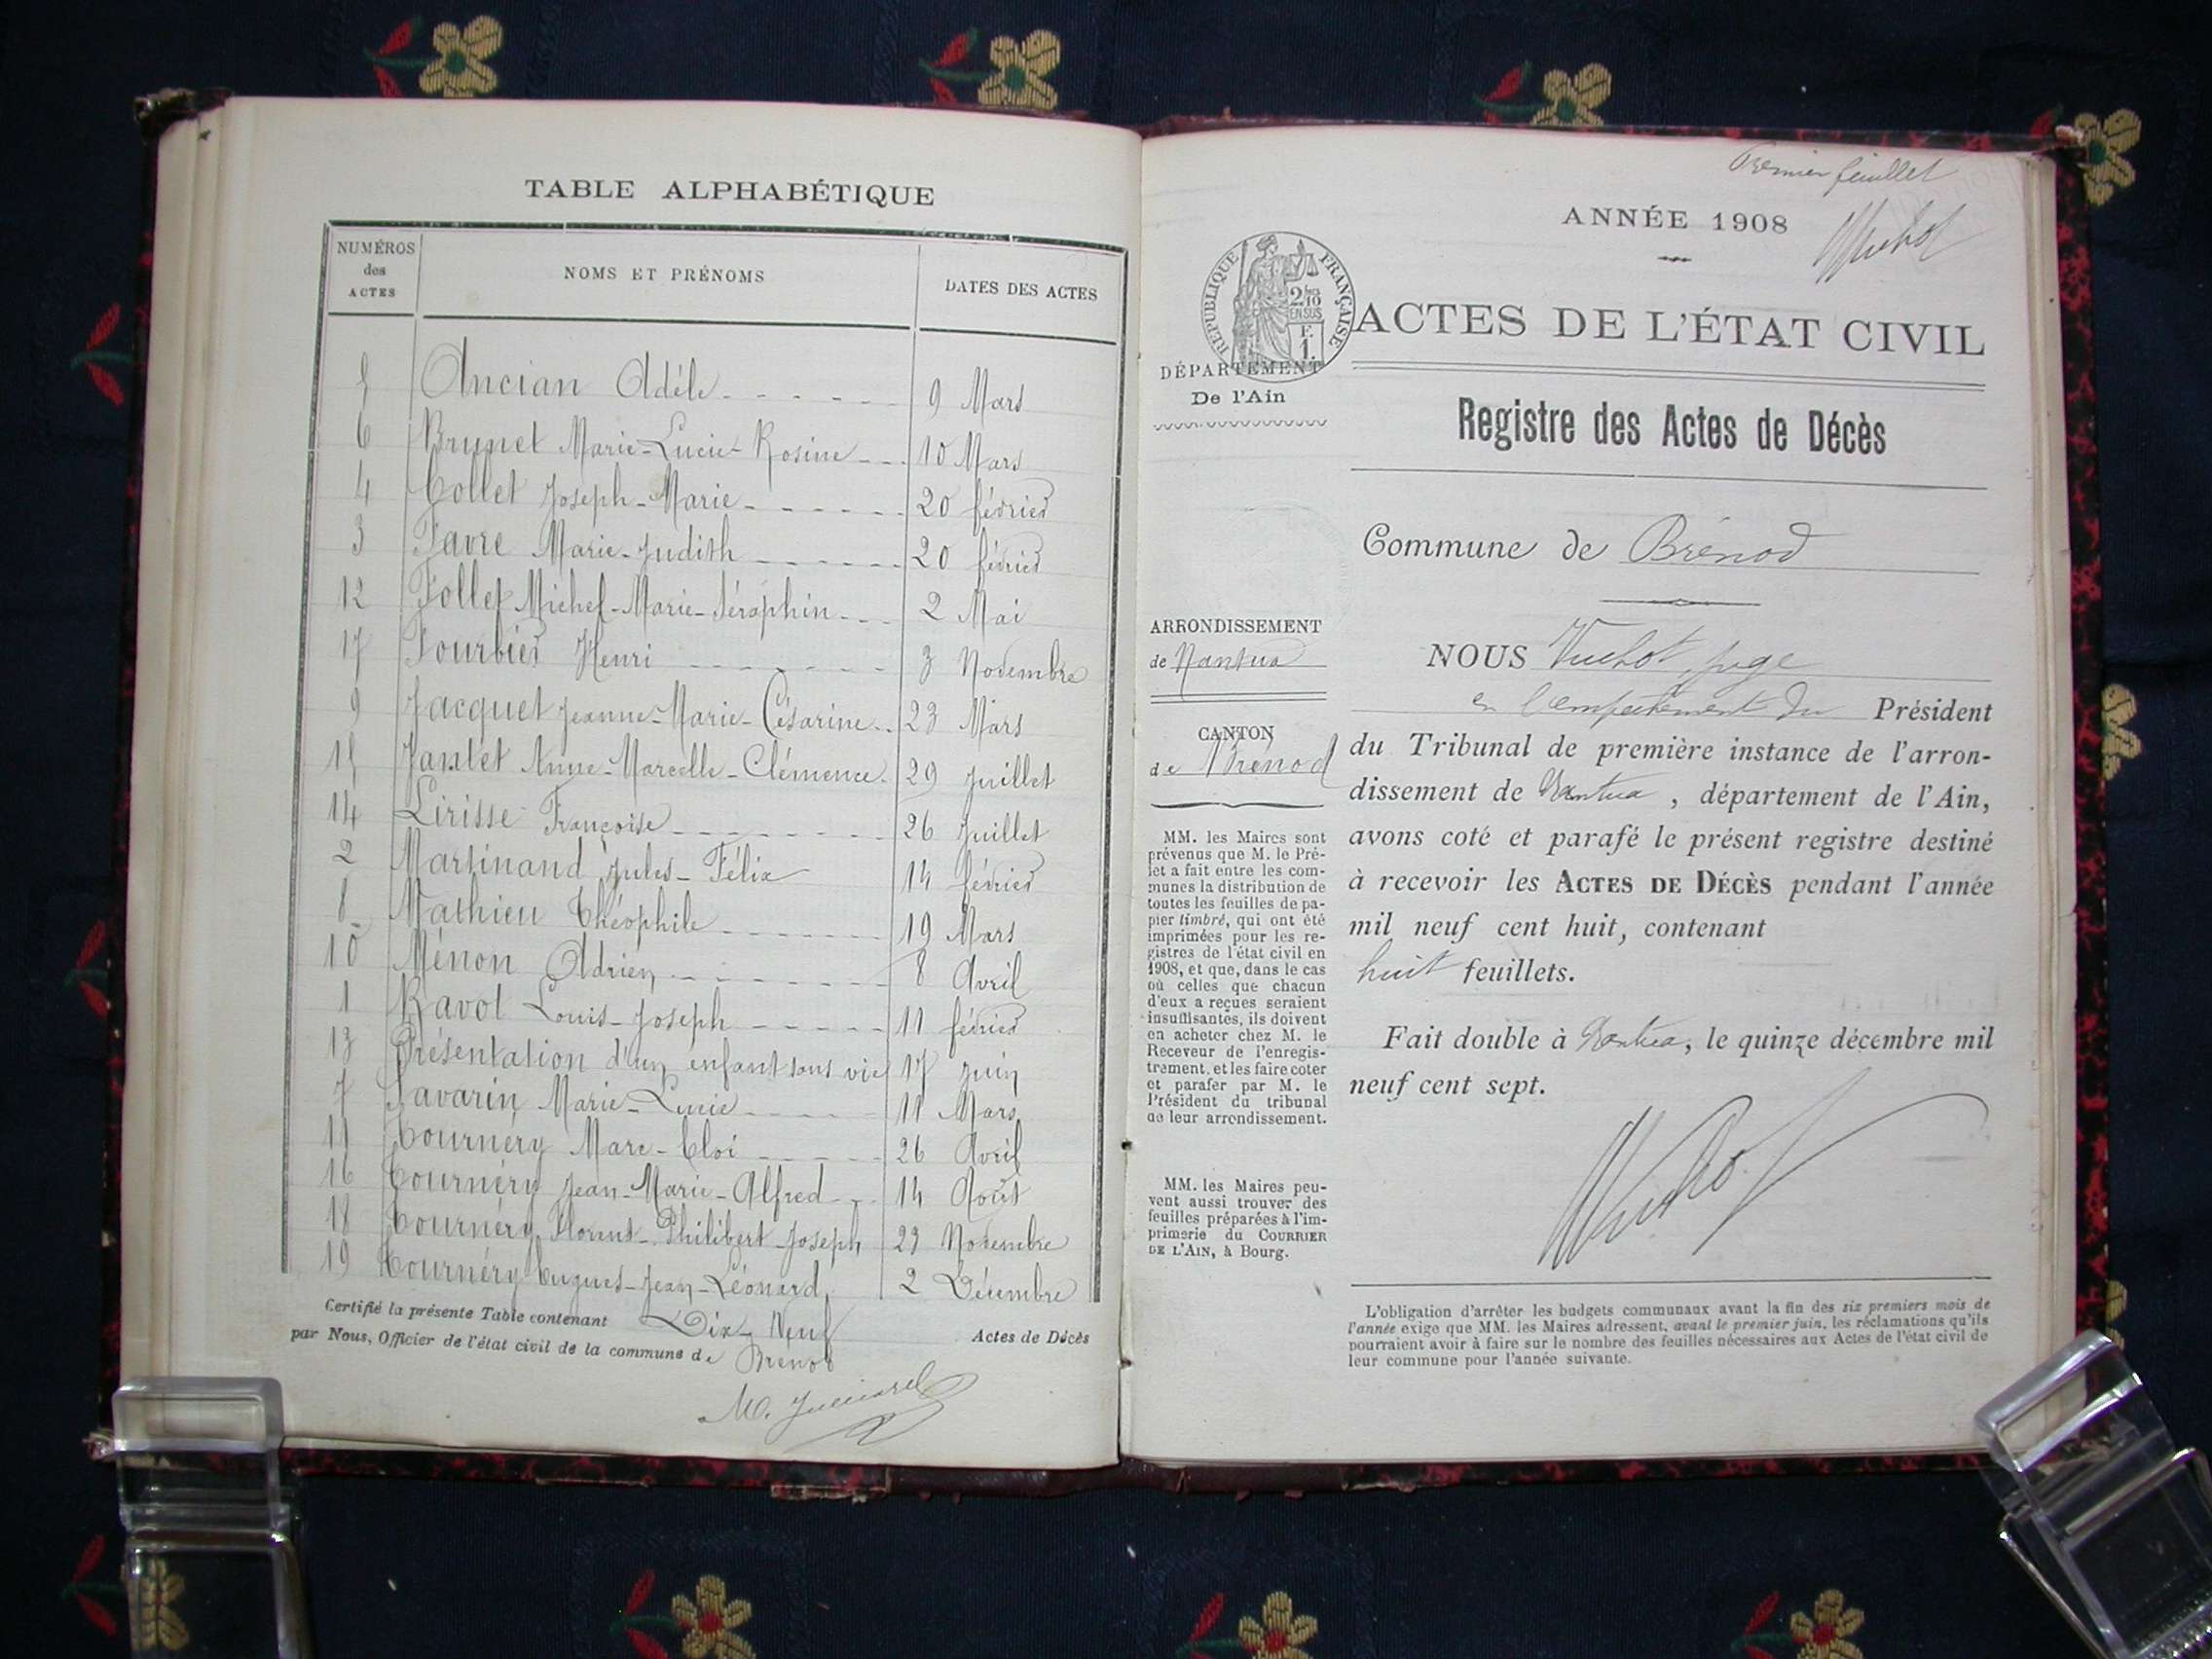 TABLE ALPHABÉTIQUE
NUMÉROS des ACTES
NOMS ET PRÉNOMS
DATES DES ACTES
5 Ancian Adèle 9 Mars
6 Brunet Marie-Lucie-Rosine 10 Mars
4 Collet Joseph-Marie 20 février
3 Favre Marie-Judith 20 février
12 Follet Michel-Marie-Séraphin 2 Mai
17 Fourbier Henri 3 Novembre
9 Jacquet Jeanne-Marie-Césarine 23 Mars
15 Jantet Anne-Marcelle-Clémence 29 Juillet
14 Lirisse Françoise 26 Juillet
2 Martinand Jules-Félix 14 février
8 Mathieu Théophile 19 Mars
10 Ménon Adrien 8 Avril
1 Ravot Louis-Joseph 11 février
13 Présentation d'un enfant sans vie 17 Juin
7 Savarin Marie-Lucie 11 Mars
11 Tournéry Marc-Eloi 26 Avril
16 Tournéry Jean-Marie-Alfred 14 Août
18 Tournéry Florent-Philibert-Joseph 29 Novembre
19 Tournéry Jean-Léonard 2 Décembre
Certifié la présente Table contenant Dix-Neuf Actes de Décès
par Nous, Officier de l'état civil de la commune de Brénod
Premier feuillet
ANNÉE 1908
Vuchot
RÉPUBLIQUE FRANÇAISE
2/10 EN SUS
F. 1.
ACTES DE L'ÉTAT CIVIL
DÉPARTEMENT
De l'Ain
Registre des Actes de Décès
Commune de Brénod
ARRONDISSEMENT
de Nantua
CANTON
de Brénod
MM. les Maires sont
prévenus que M. le Pré-
fet a fait entre les com-
munes la distribution de
toutes les feuilles de pa-
pier timbré, qui ont été
imprimées pour les re-
gistres de l'état civil en
1908, et que, dans le cas
où celles que chacun
d'eux a reçues seraient
insuffisantes, ils doivent
en acheter chez M. le
Receveur de l'enregis-
trement, et les faire coter
et parafer par M. le
Président du tribunal
de leur arrondissement.
MM. les Maires peu-
vent aussi trouver des
feuilles préparées à l'im-
primerie du COURRIER
DE L'AIN, à Bourg.
NOUS Vuchot, juge
en l'empêchement du Président
du Tribunal de première instance de l'arron-
dissement de Nantua, département de l'Ain,
avons coté et parafé le présent registre destiné
à recevoir les ACTES DE DÉCÈS pendant l'année
mil neuf cent huit, contenant
huit feuillets.
Fait double à Nantua, le quinze décembre mil
neuf cent sept.
Vuchot
L'obligation d'arrêter les budgets communaux avant la fin des six premiers mois de
l'année exige que MM. les Maires adressent, avant le premier juin, les réclamations qu'ils
pourraient avoir à faire sur le nombre des feuilles nécessaires aux Actes de l'état civil de
leur commune pour l'année suivante.